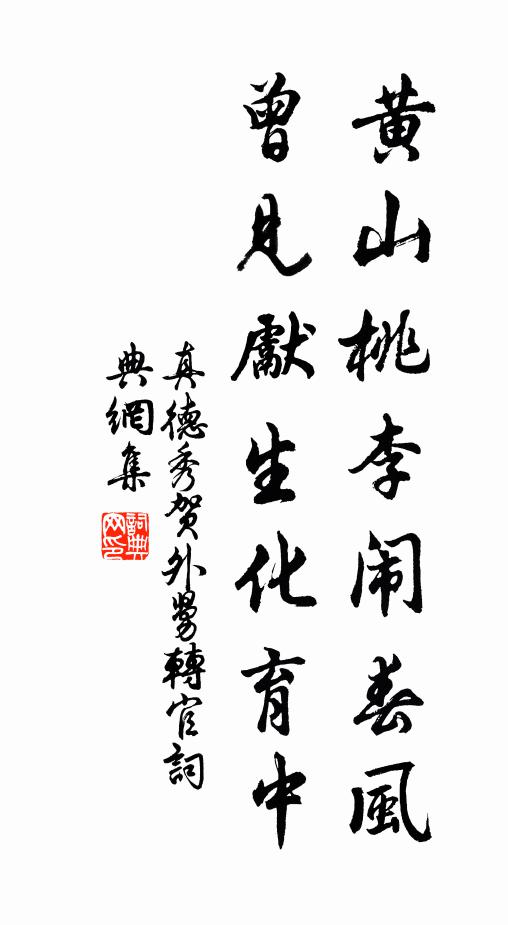 黄山桃李闹春風
曾見獻生化育中
真德秀贺外舅轉官詞
典網集
詞典網印